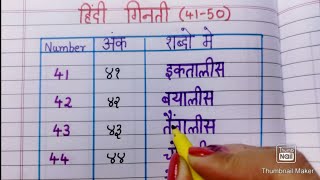 हिंदी गिनती (41-50)
Number अंक शब्दो मे
41 ४१ इकतालीस
42 ४२ बयालीस
43 ४३ तैंतालीस
44 ४४
Thumb Nail
Thumbnail Maker